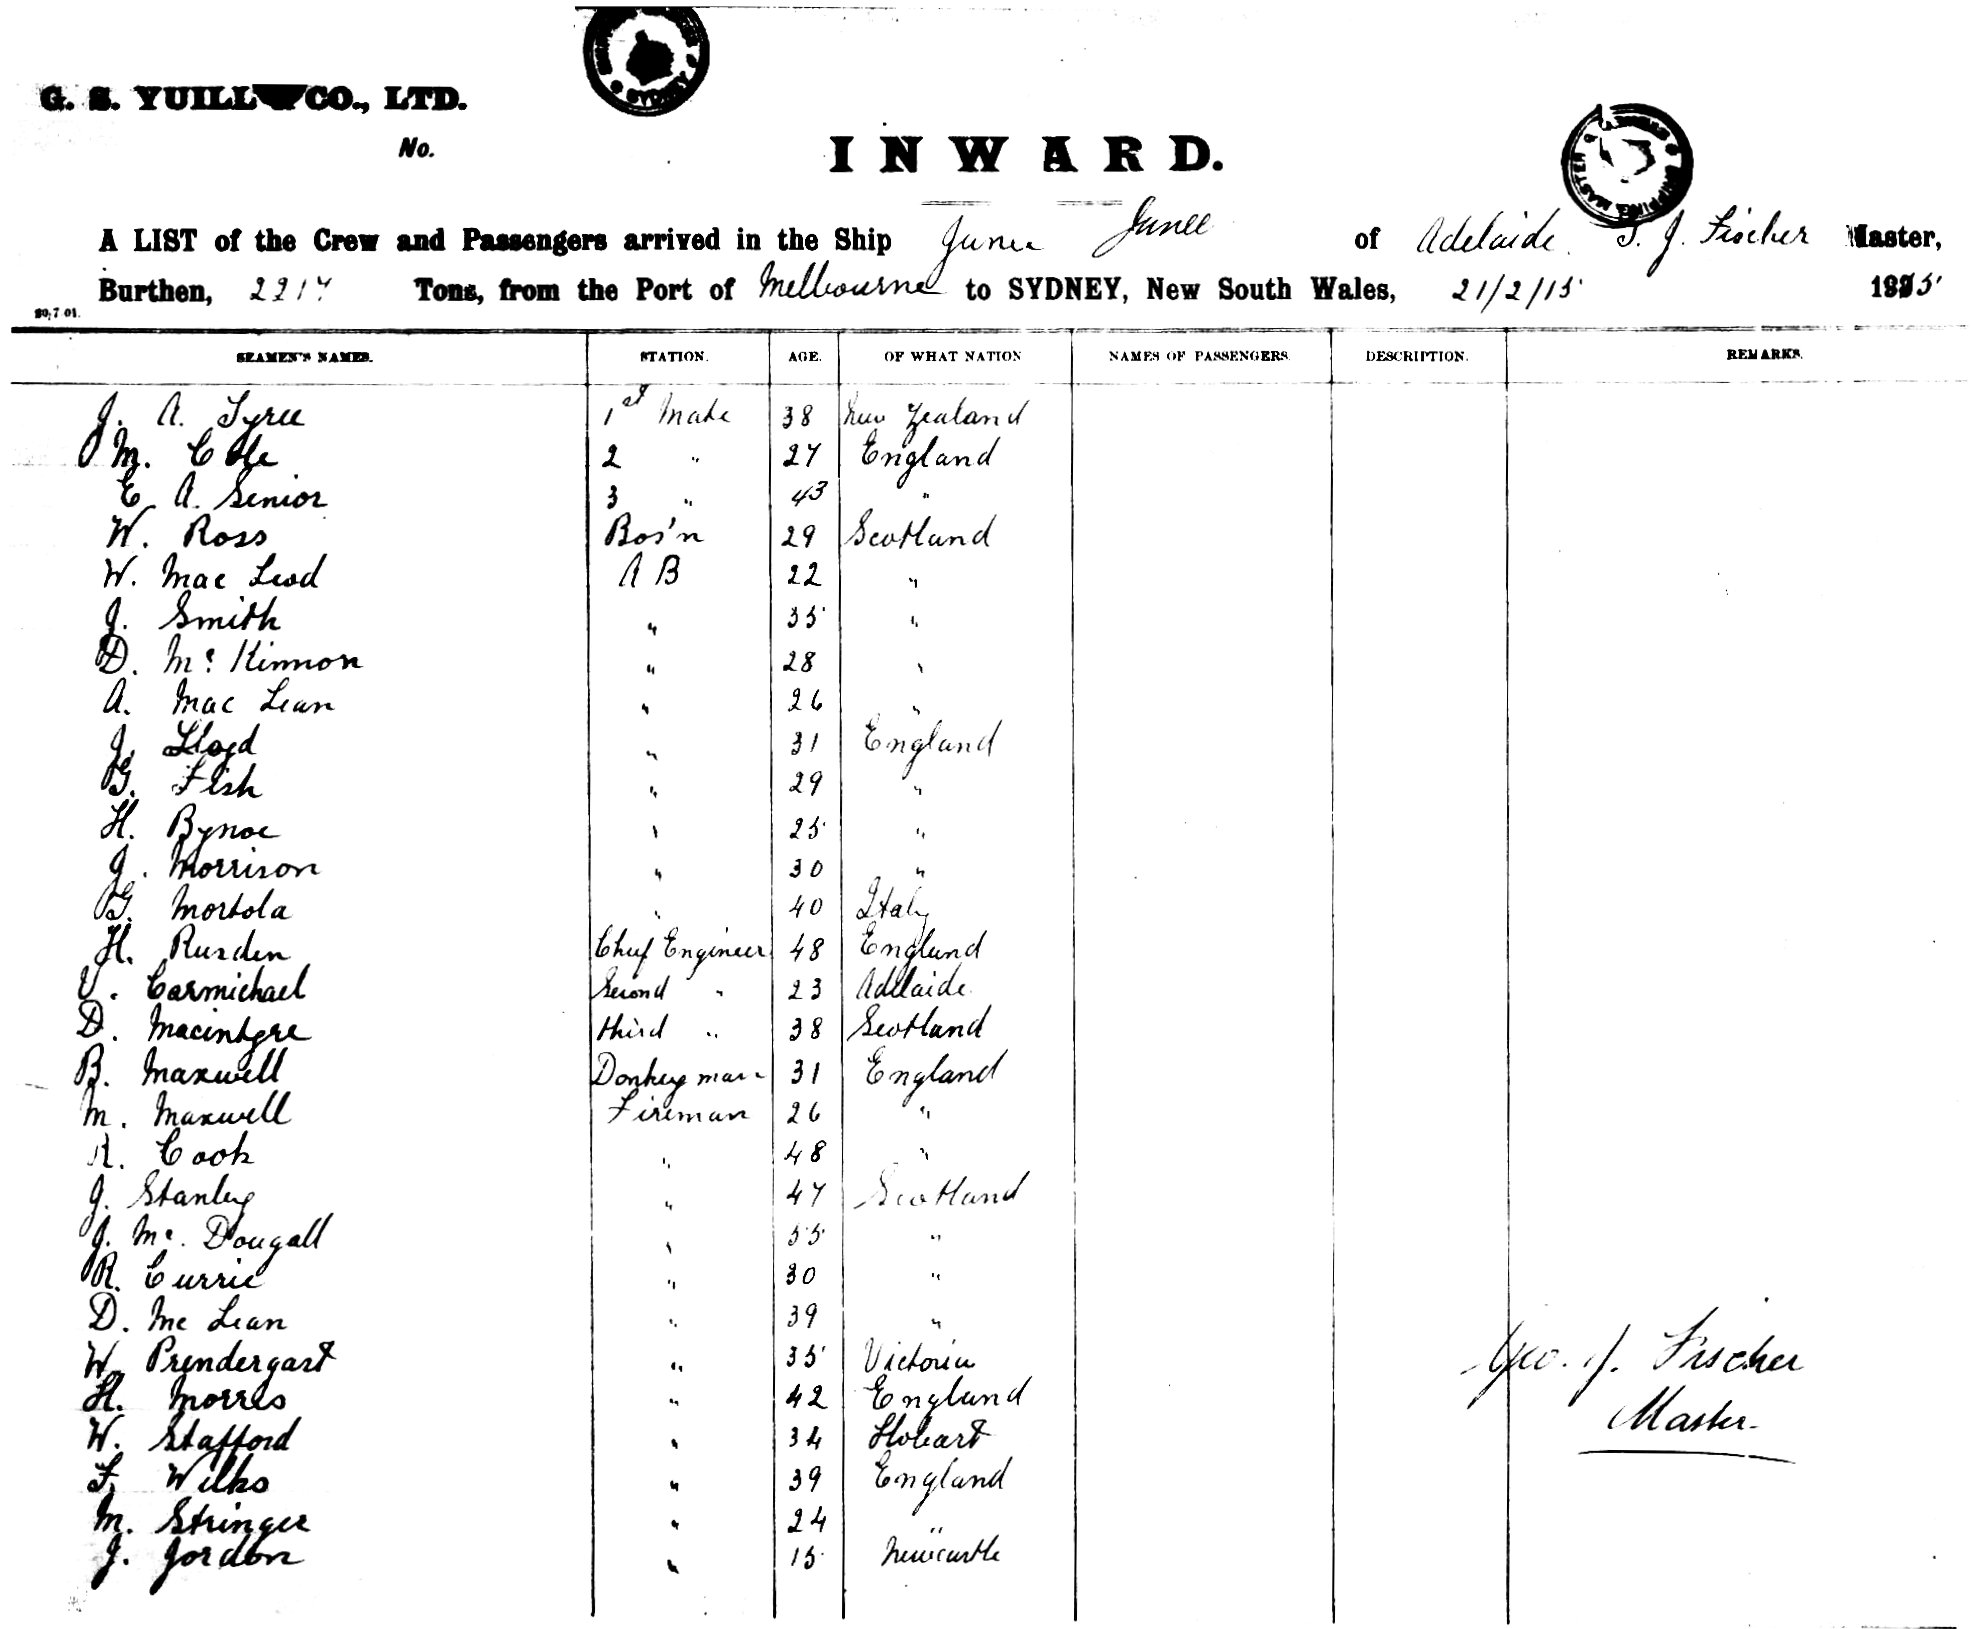 G. S. YUILL & CO., LTD.
No.
SYDNEY
INWARD.
SHIPPING MASTER
A LIST of the Crew and Passengers arrived in the Ship Junee Junee of Adelaide. G. J. Fischer Master,
Burthen, 2217 Tons, from the Port of Melbourne to SYDNEY, New South Wales, 21/2/15 1915
20/7 01.
SEAMEN'S NAMES. STATION. AGE. OF WHAT NATION NAMES OF PASSENGERS. DESCRIPTION. REMARKS.
J. A. Tyree 1st Mate 38 New Zealand
M. Cole 2 " 27 England
E. A. Senior 3 " 43 "
W. Ross Bos'n 29 Scotland
W. Mac Leod A B 22 "
J. Smith " 35 "
D. Mc Kinnon " 28 "
A. Mac Lean " 26 "
J. Lloyd " 31 England
G. Fish " 29 "
H. Bynoe " 25 "
J. Morrison " 30 "
G. Mortola " 40 Italy
H. Rusden Chief Engineer 48 England
V. Carmichael Second " 23 Adelaide
D. Macintyre third " 38 Scotland
B. Maxwell Donkeyman 31 England
M. Maxwell Fireman 26 "
R. Cook " 48 "
J. Stanley " 47 Scotland
J. Mc. Dougall " 55 "
R. Currie " 30 "
D. Mc Lean " 39 "
W. Prendergast " 35 Victoria
H. Morris " 42 England
W. Stafford " 34 Hobart
F. Wilks " 39 England
M. Stringer " 24 "
J. Jordon " 15 Newcastle
Geo. J. Fischer
Master